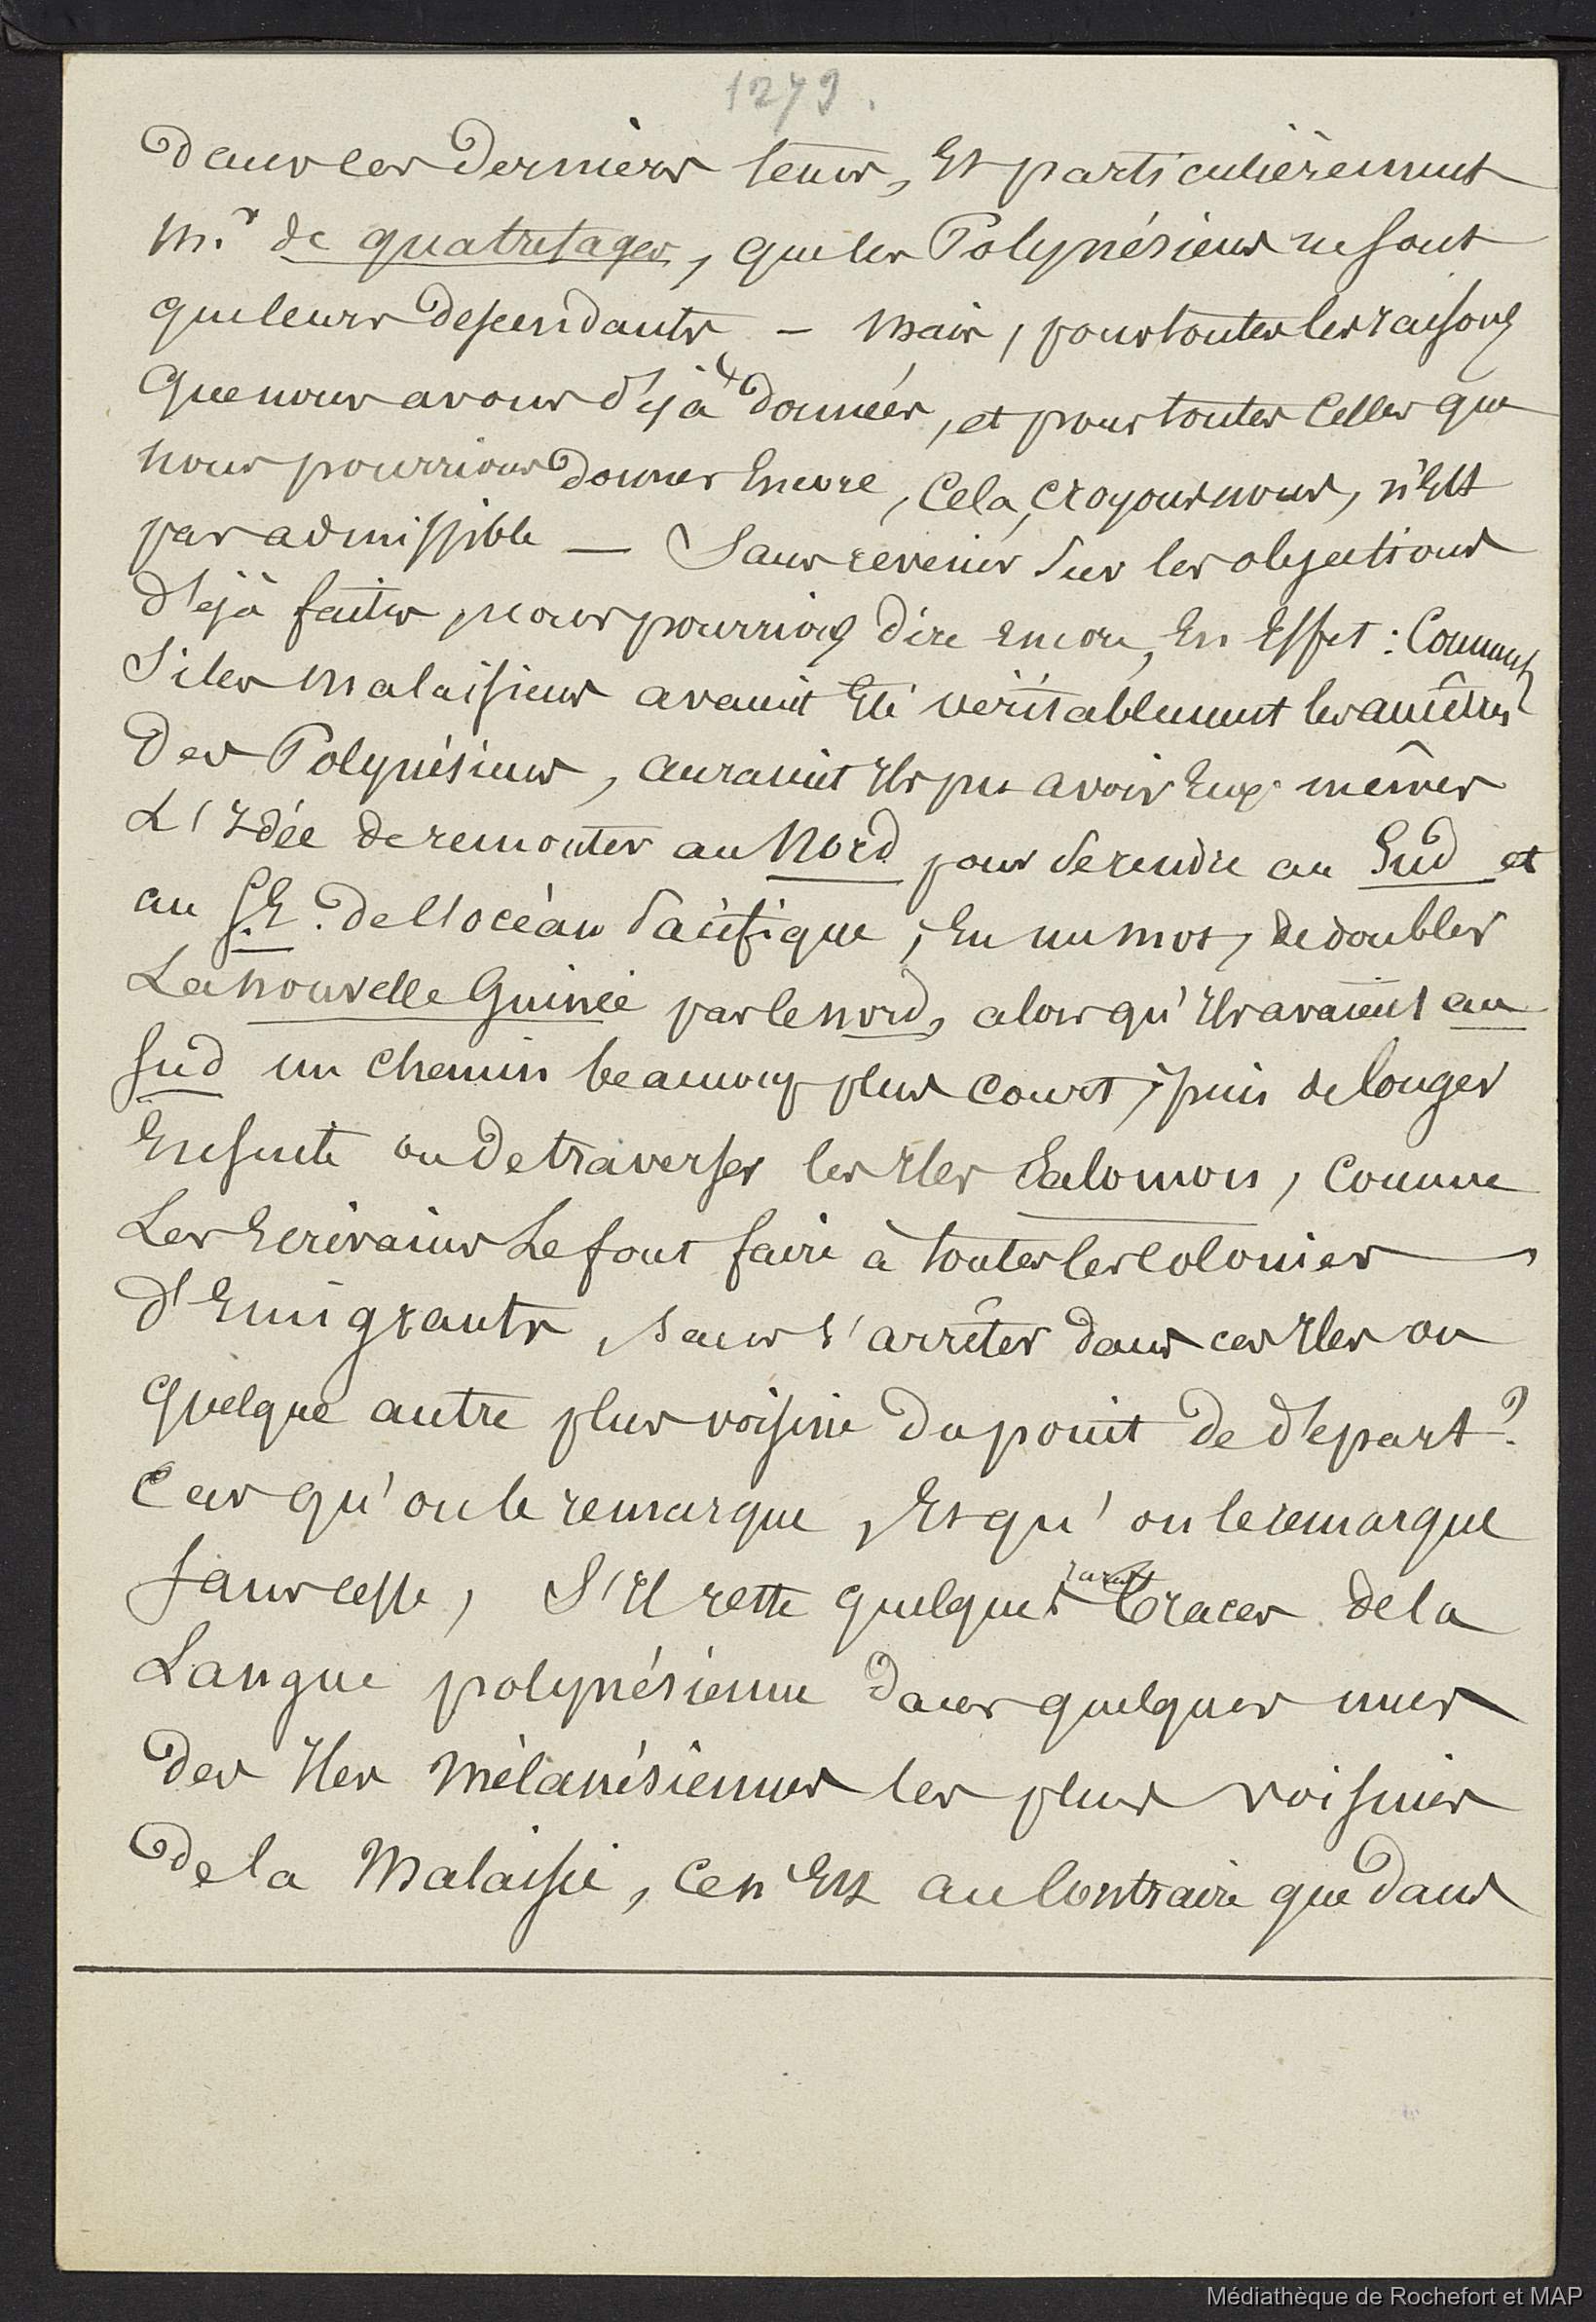 1279.
dans les derniers tems, Et particulièrement
Mr de quatrefages, que les Polynésiens ne sont
que leurs descendants – mais, pour toutes les raisons
que nous avons déjà données, et pour toutes celles que
nous pourrions donner Encore, Cela, croyons nous, n'Est
pas admissible — Sans revenir sur les objections
déjà faites, nous pourrions dire encore, En Effet : Comment
Si les malaisiens avaient Eté véritablement les ancêtres
Des Polynésiens, auraient Ils pu avoir Eux-mêmes
L'Idée de remonter au Nord pour se rendre au Sud et
au S.E. de l'océan Pacifique, En un mot, de doubler
La nouvelle Guinée par le nord, alors qu'Ils avaient au
Sud un chemin beaucoup plus court, puis de longer
Ensuite ou de traverser les Iles Salomon, Comme
Les Ecrivains Le font faire à toutes les colonies
d'Emigrants, sans s'arrêter dans ces Iles ou
quelque autre plus voisine du point de départ ?
Car qu'on le remarque, Et qu'on le remarque
Sans cesse, S'Il reste quelques rares traces de la
Langue polynésienne dans quelques unes
des Iles Mélanésiennes les plus voisines
de la Malaisie, Ce n'Est au Contraire que dans
Médiathèque de Rochefort et MAP